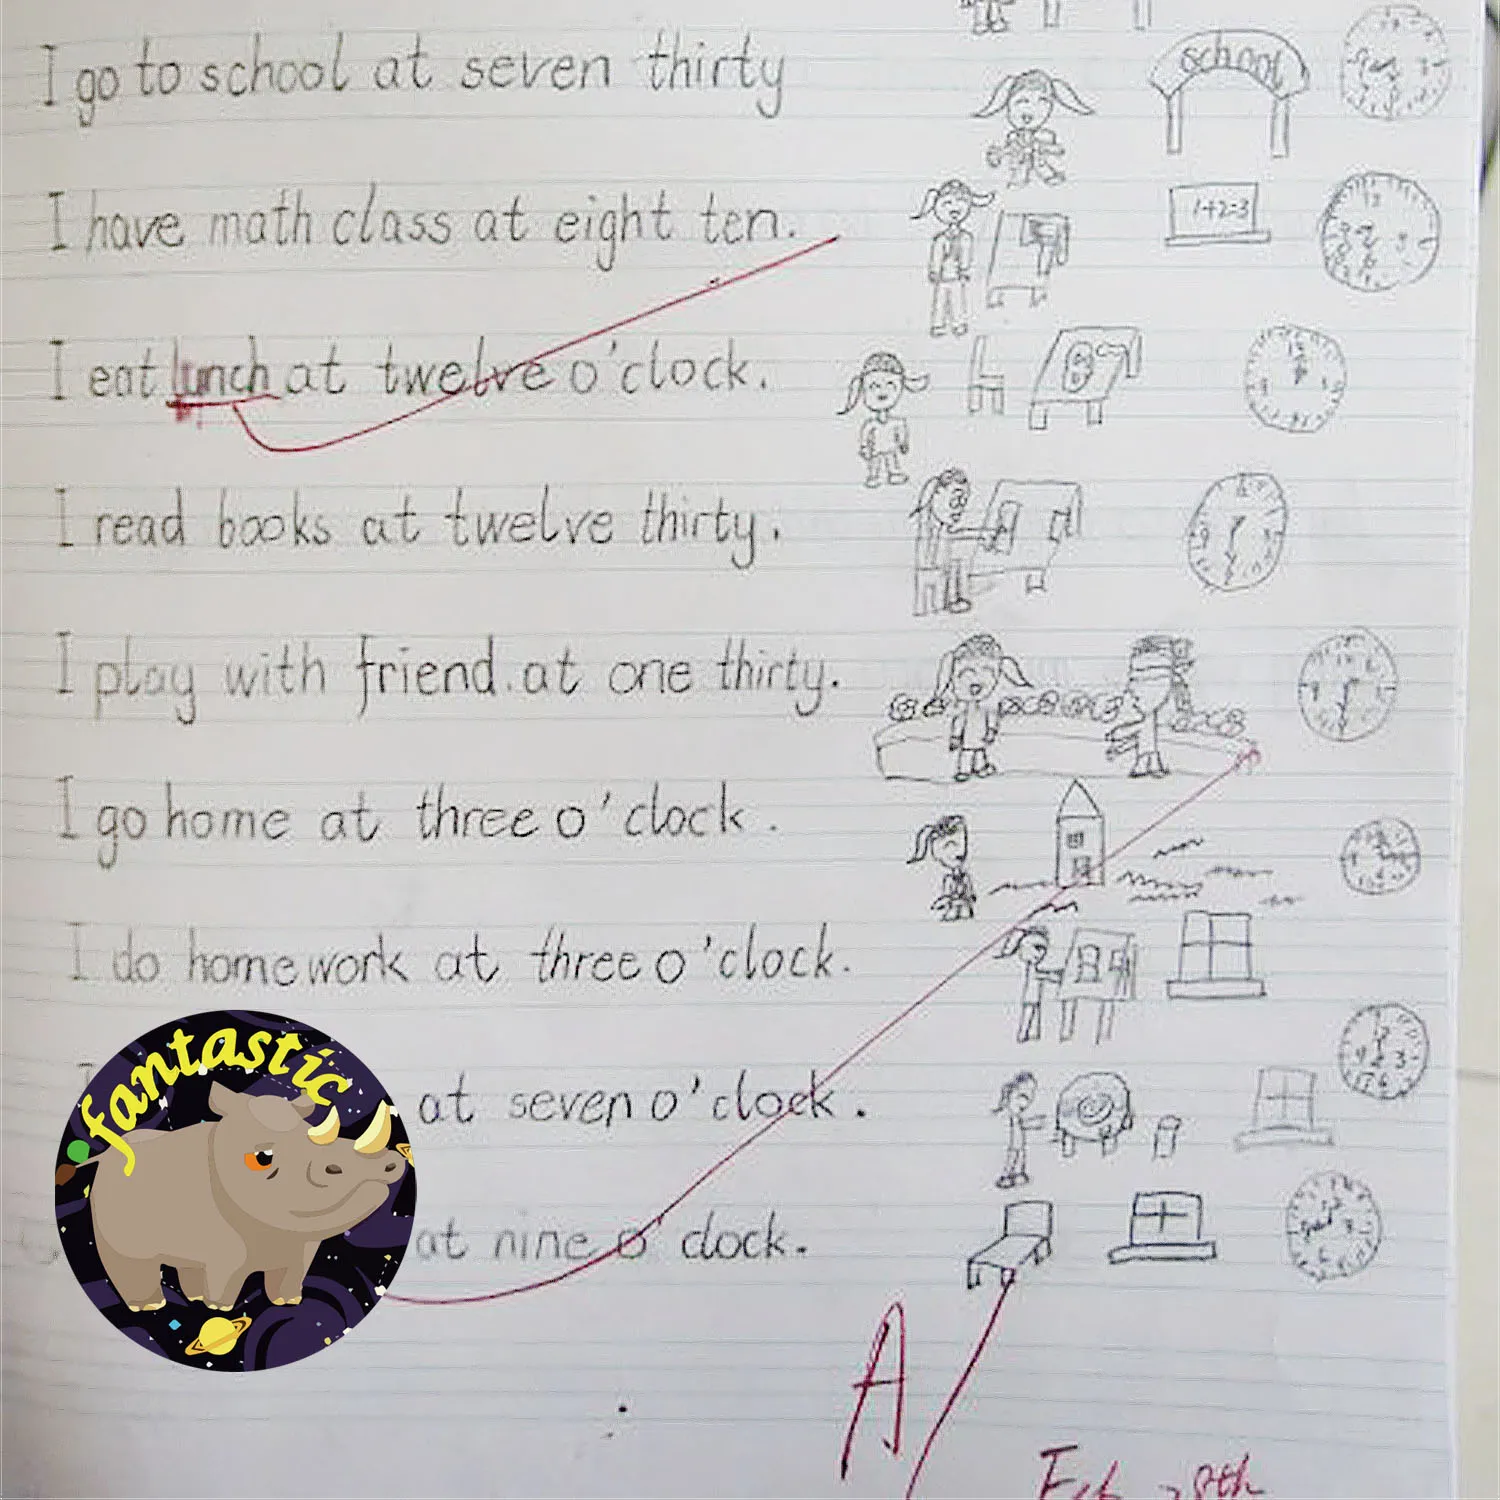 I go to school at seven thirty
school
I have math class at eight ten.
1+2=3
I eat lunch at twelve o'clock.
I read books at twelve thirty.
I play with friend.at one thirty.
I go home at three o'clock.
I do homework at three o'clock.
fantastic
at seven o'clock.
at nine o'clock.
A
Feb 28th